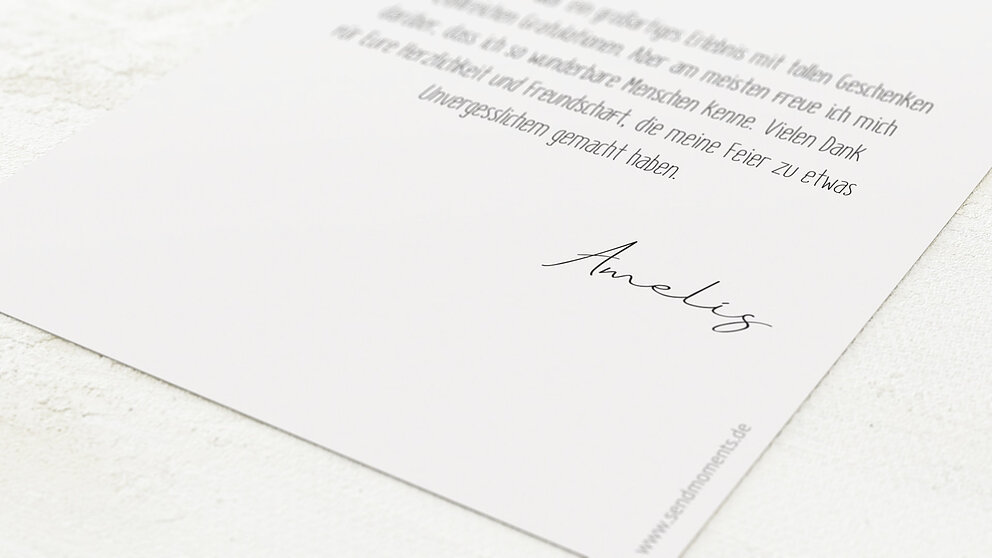 ein großartiges Erlebnis mit tollen Geschenken
Gratulationen. Aber am meisten freue ich mich
darüber, dass ich so wunderbare Menschen kenne. Vielen Dank
für Eure Herzlichkeit und Freundschaft, die meine Feier zu etwas
Unvergesslichem gemacht haben.
Amelis
www.sendmoments.de